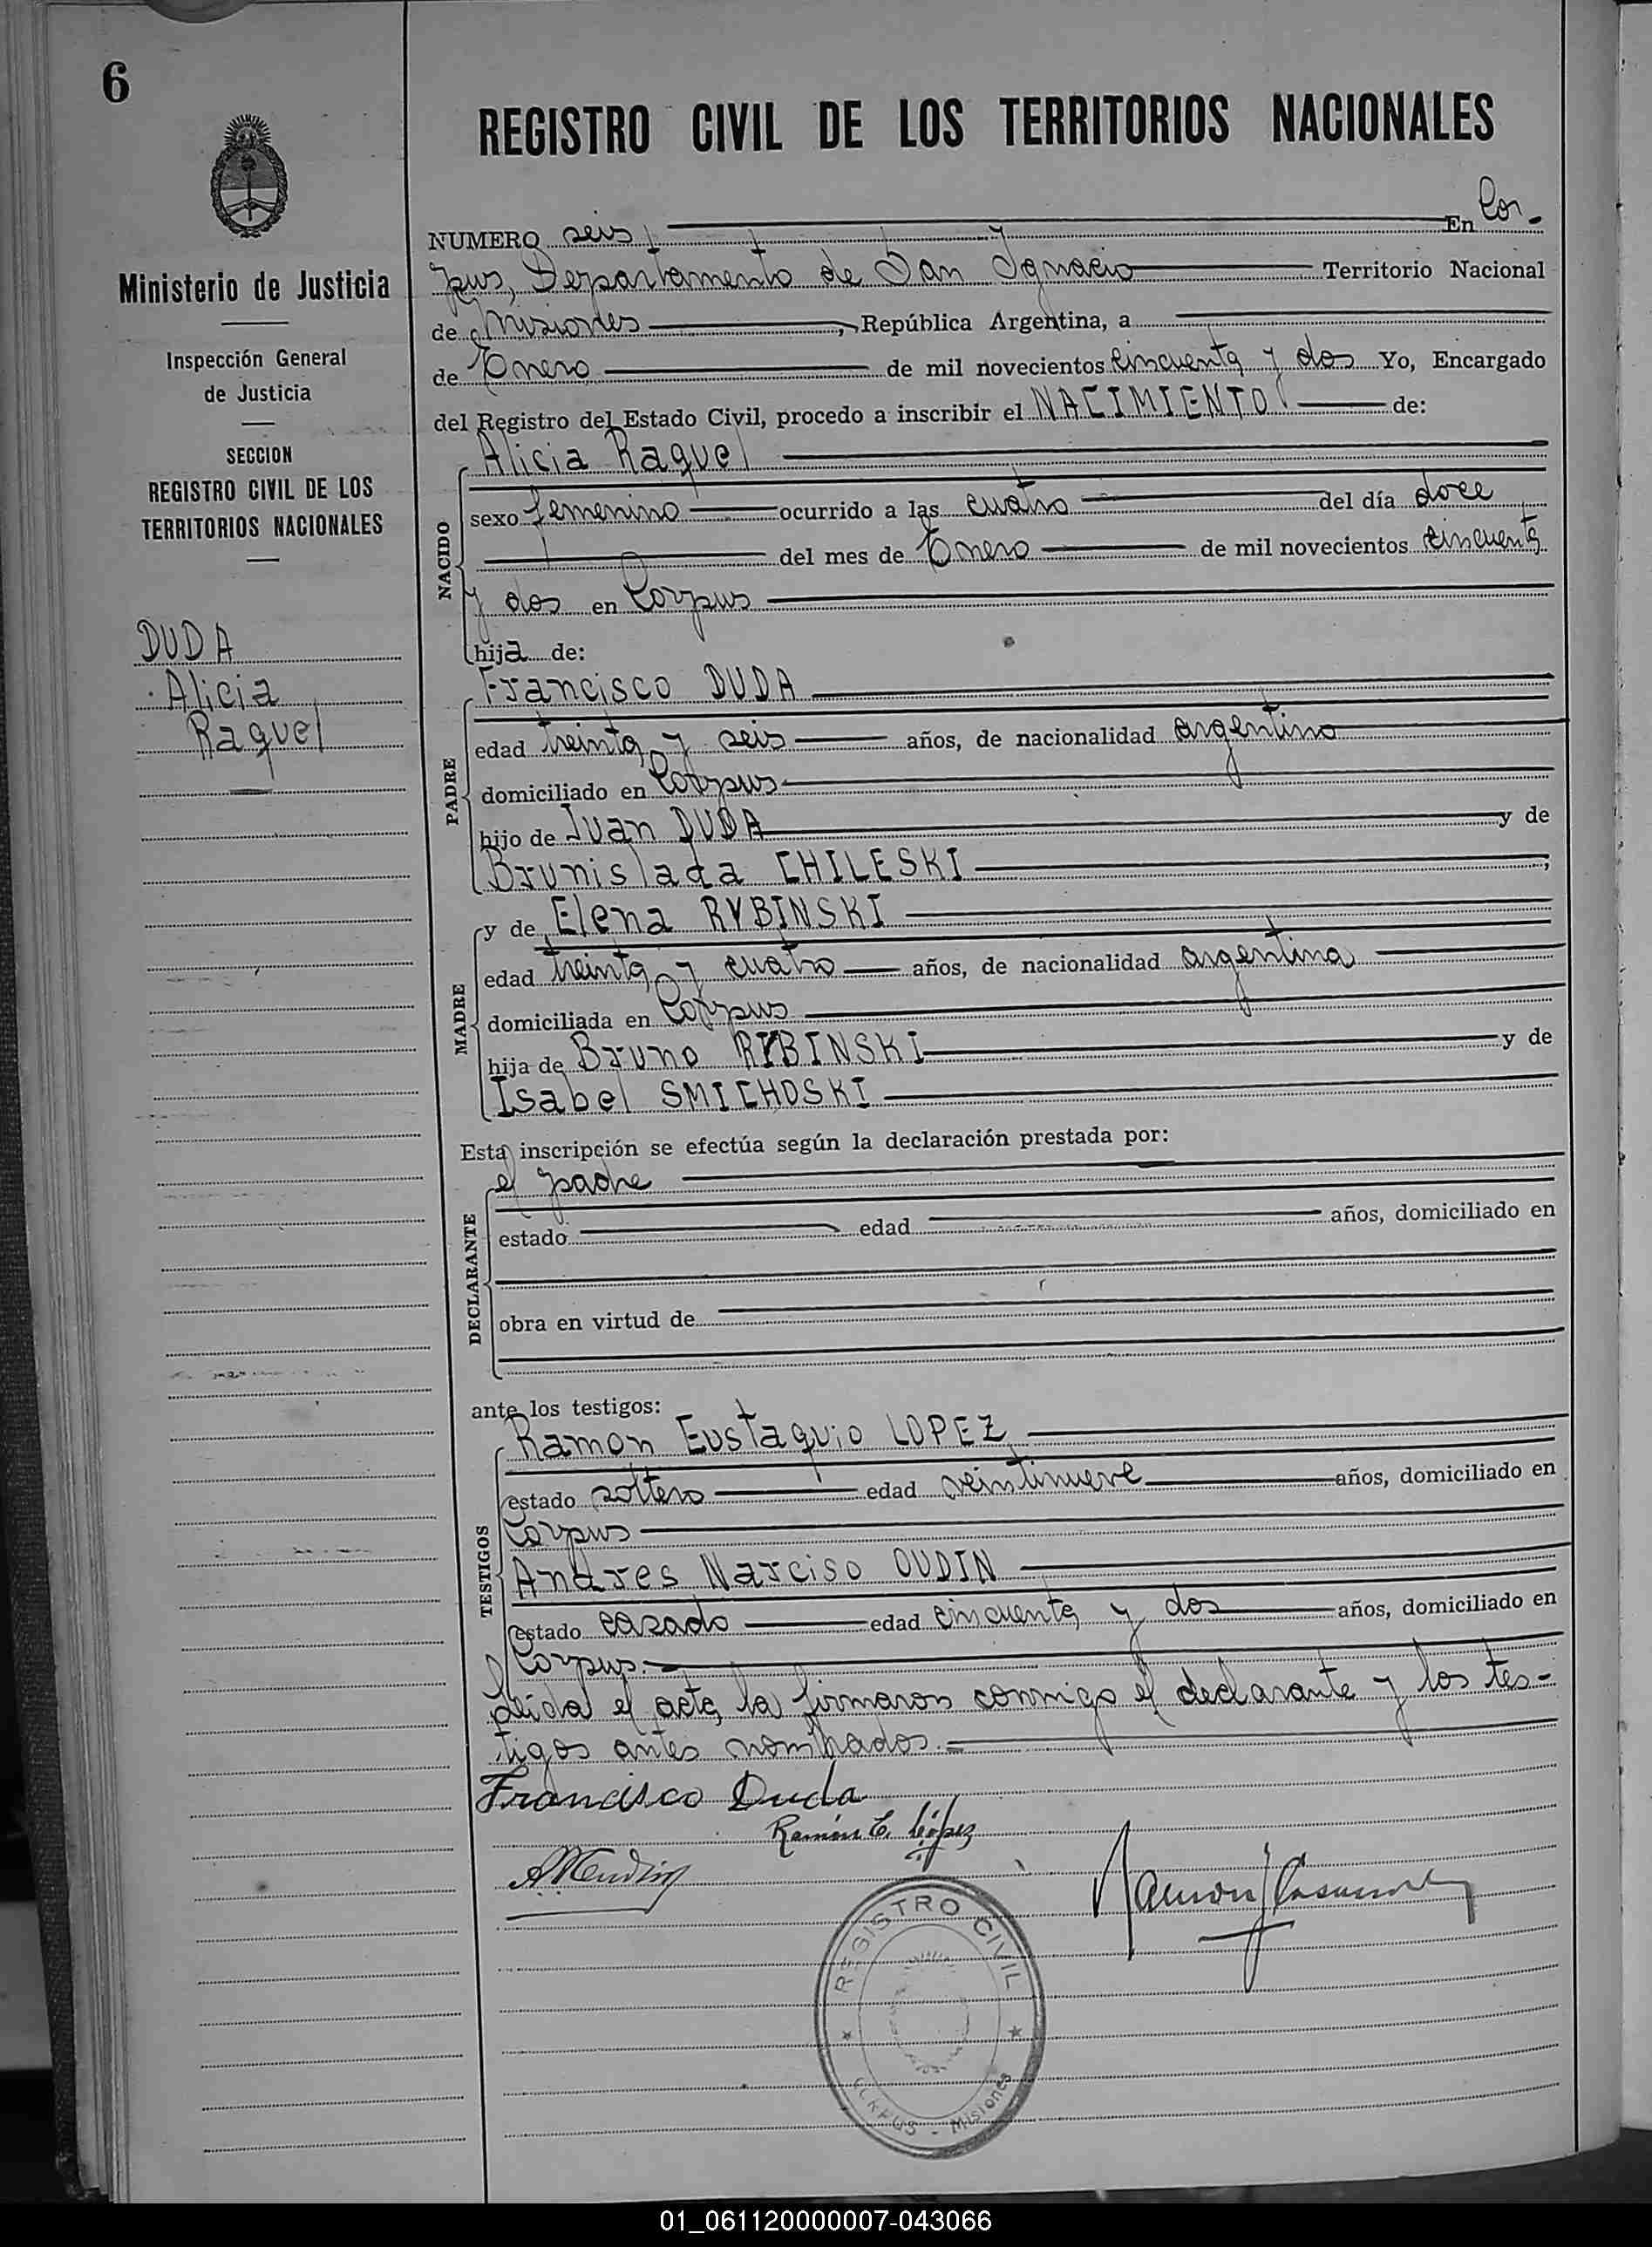 6
REGISTRO CIVIL DE LOS TERRITORIOS NACIONALES
Ministerio de Justicia
Inspección General
de Justicia
SECCION
REGISTRO CIVIL DE LOS
TERRITORIOS NACIONALES
DUDA
Alicia
Raquel
NUMERO seis En Cor-
pus, Departamento de San Ignacio Territorio Nacional
de Misiones, República Argentina, a
de Enero de mil novecientos cincuenta y dos Yo, Encargado
del Registro del Estado Civil, procedo a inscribir el NACIMIENTO de:
NACIDO
Alicia Raquel
sexo femenino ocurrido a las cuatro del día doce
del mes de Enero de mil novecientos cincuenta
y dos en Corpus
hija de:
PADRE
Francisco DUDA
edad treinta y seis años, de nacionalidad argentino
domiciliado en Corpus
hijo de Juan DUDA y de
Brunislada CHILESKI,
MADRE
y de Elena RYBINSKI
edad treinta y cuatro años, de nacionalidad argentina
domiciliada en Corpus
hija de Bruno RYBINSKI y de
Isabel SMICHOSKI
Esta inscripción se efectúa según la declaración prestada por:
DECLARANTE
el padre
estado edad años, domiciliado en
obra en virtud de
ante los testigos:
TESTIGOS
Ramon Eustaquio LOPEZ
estado soltero edad veintinueve años, domiciliado en
Corpus
Andres Narciso OUDIN
estado casado edad cincuenta y dos años, domiciliado en
Corpus.-
Leida el acta, la firmaron conmigo el declarante y los tes-
tigos antes nombrados.=
Francisco Duda
Ramón E. López
REGISTRO CIVIL
CORPUS - Misiones
01_061120000007-043066